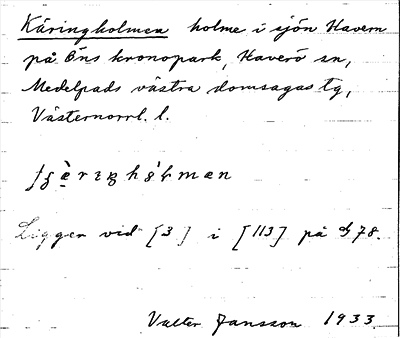 Käringholmen holme i sjön Havern
på Öns kronopark, Haverö sn,
Medelpads västra domsagas tg,
Västernorrl. l.
Ligger vid [3] i [113] på 78.
Valter Jansson 1933.